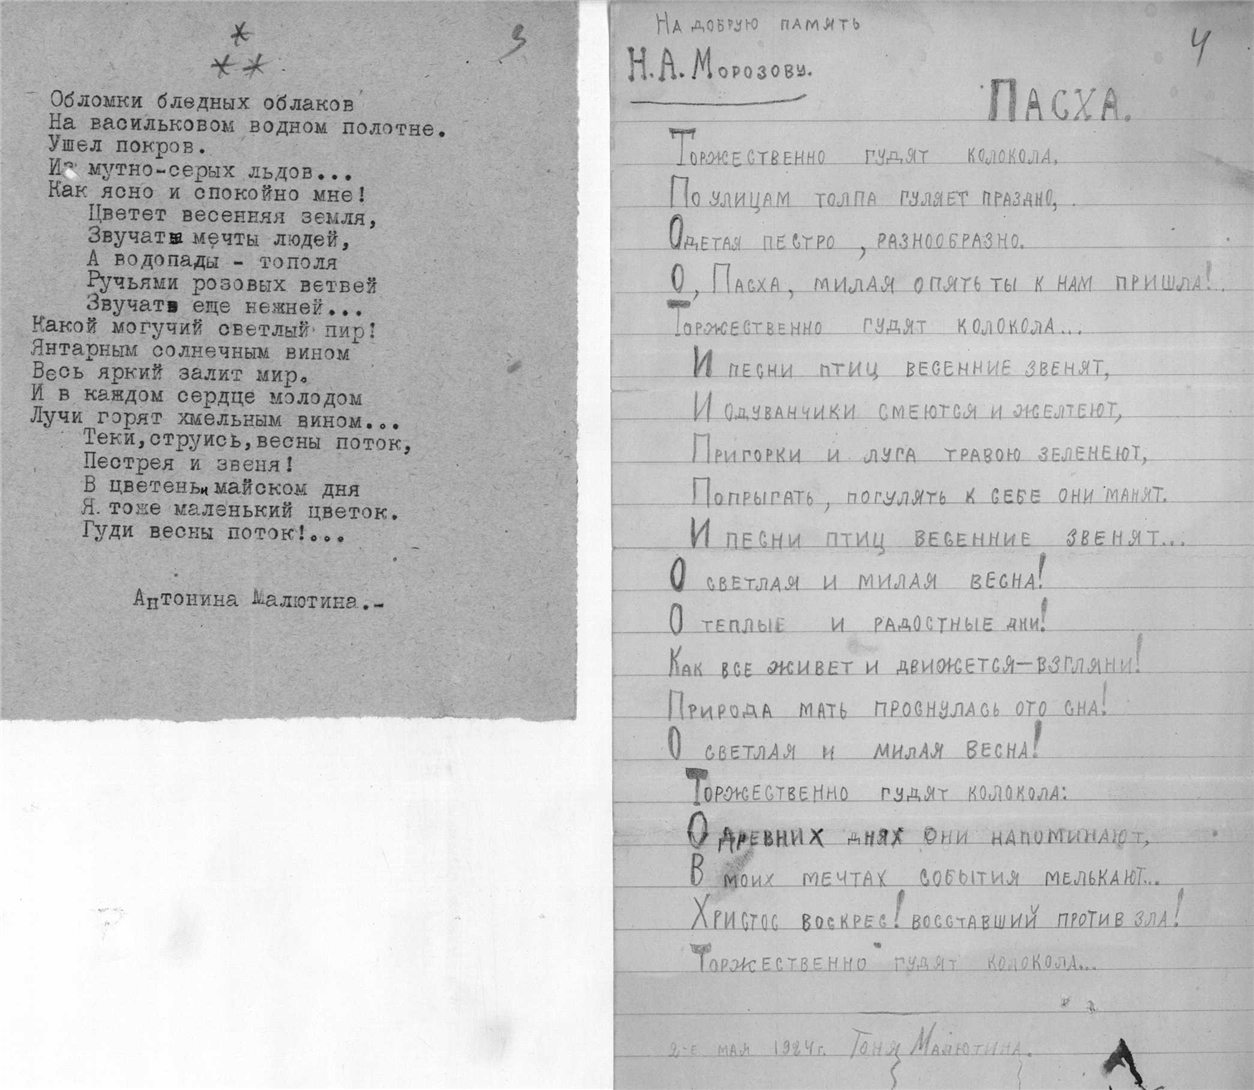 3
*
* *
Обломки бледных облаков
На васильковом водном полотне.
Ушел покров.
Из мутно-серых льдов...
Как ясно и спокойно мне!
Цветет весенняя земля,
Звучат мечты людей,
А водопады - тополя
Ручьями розовых ветвей
Звучат еще нежней...
Какой могучий светлый пир!
Янтарным солнечным вином
Весь яркий залит мир.
И в каждом сердце молодом
Лучи горят хмельным вином...
Теки,струись,весны поток,
Пестрея и звеня!
В цветеньи майском дня
Я тоже маленький цветок.
Гуди весны поток!...
Антонина Малютина.-
4
На добрую память
Н.А.Морозову.
Пасха.
Торжественно гудят колокола,
По улицам толпа гуляет праздно,
Одетая пестро, разнообразно.
О, Пасха, милая опять ты к нам пришла!
Торжественно гудят колокола...
И песни птиц весенние звенят,
И одуванчики смеются и желтеют,
Пригорки и луга травою зеленеют,
Попрыгать, погулять к себе они манят.
И песни птиц весенние звенят...
О светлая и милая весна!
О теплые и радостные дни!
Как все живет и движется—взгляни!
Природа мать проснулась ото сна!
О светлая и милая весна!
Торжественно гудят колокола:
О древних днях они напоминают,
В моих мечтах события мелькают...
Христос воскрес! восставший против зла!
Торжественно гудят колокола...
2-е мая 1924г. Тоня Малютина.